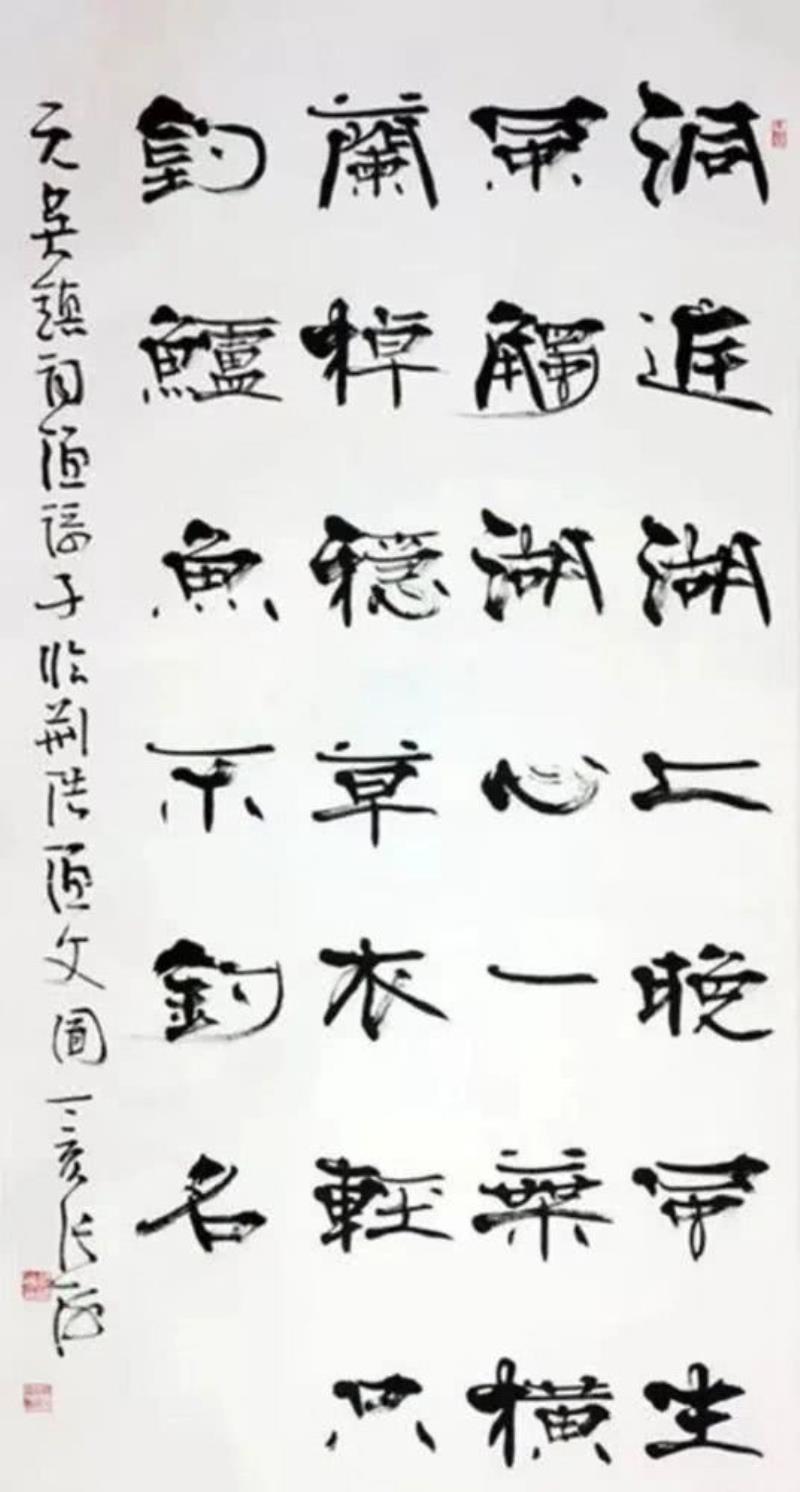 洞庭湖上晚風生
風觸湖心一葉橫
蘭棹穩草衣輕只
釣鱸魚不釣名
元吳鎮詞漁謌子臨荊浩漁父圖丁亥張海